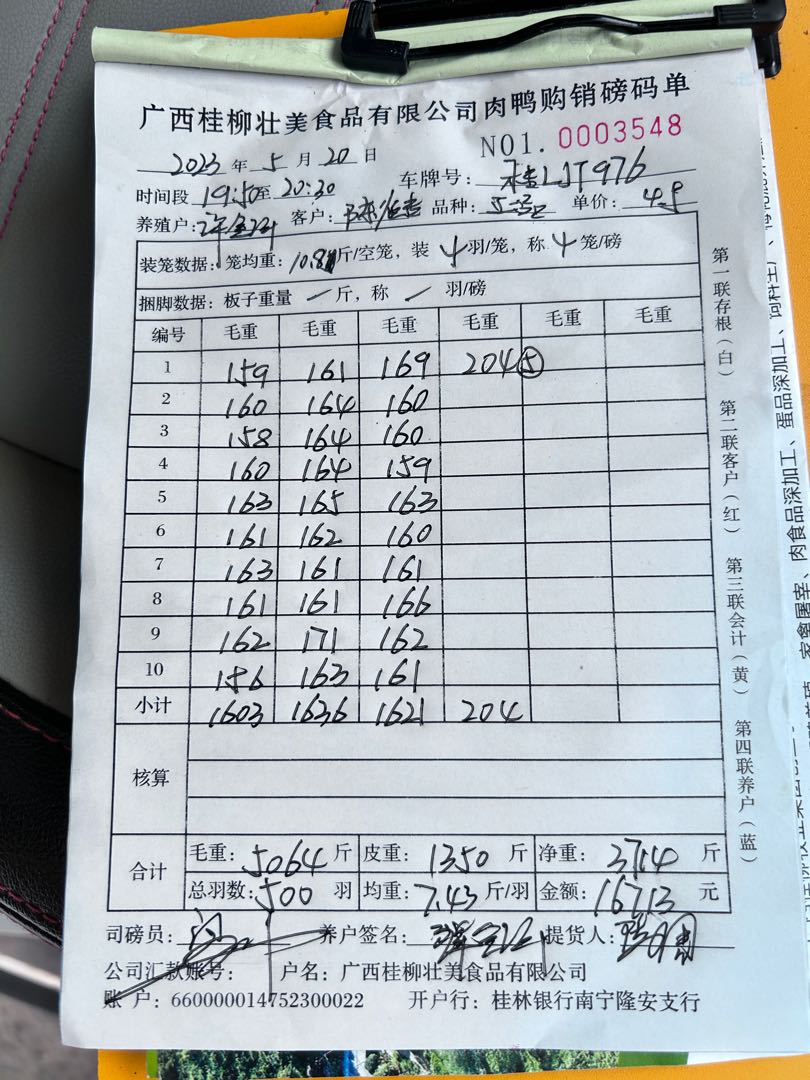 广西桂柳壮美食品有限公司肉鸭购销磅码单
NO1. 0003548
2023 年 5 月 20 日
时间段 19:50 至 20:30 车牌号: 桂LJT976
养殖户: 客户: 品种: 5号 单价: 4.5
装笼数据: 笼均重: 10.8 斤/空笼, 装 4 羽/笼, 称 4 笼/磅
捆脚数据: 板子重量 / 斤, 称 / 羽/磅
编号 毛重 毛重 毛重 毛重 毛重 毛重
1 159 161 169 204 ⑤
2 160 164 160
3 158 164 160
4 160 164 159
5 163 165 163
6 161 162 160
7 163 161 161
8 161 161 166
9 162 171 162
10 156 163 161
小计 1603 1636 1621 204
核算
合计 毛重: 5064 斤 皮重: 1350 斤 净重: 3714 斤
总羽数: 500 羽 均重: 7.43 斤/羽 金额: 16713 元
司磅员: 养户签名: 提货人:
公司汇款账号: 户名: 广西桂柳壮美食品有限公司
账 户: 660000014752300022 开户行: 桂林银行南宁隆安支行
第一联存根(白) 第二联客户(红) 第三联会计(黄) 第四联养户(蓝)
蛋品深加工、饲料生产、
肉食品深加工、